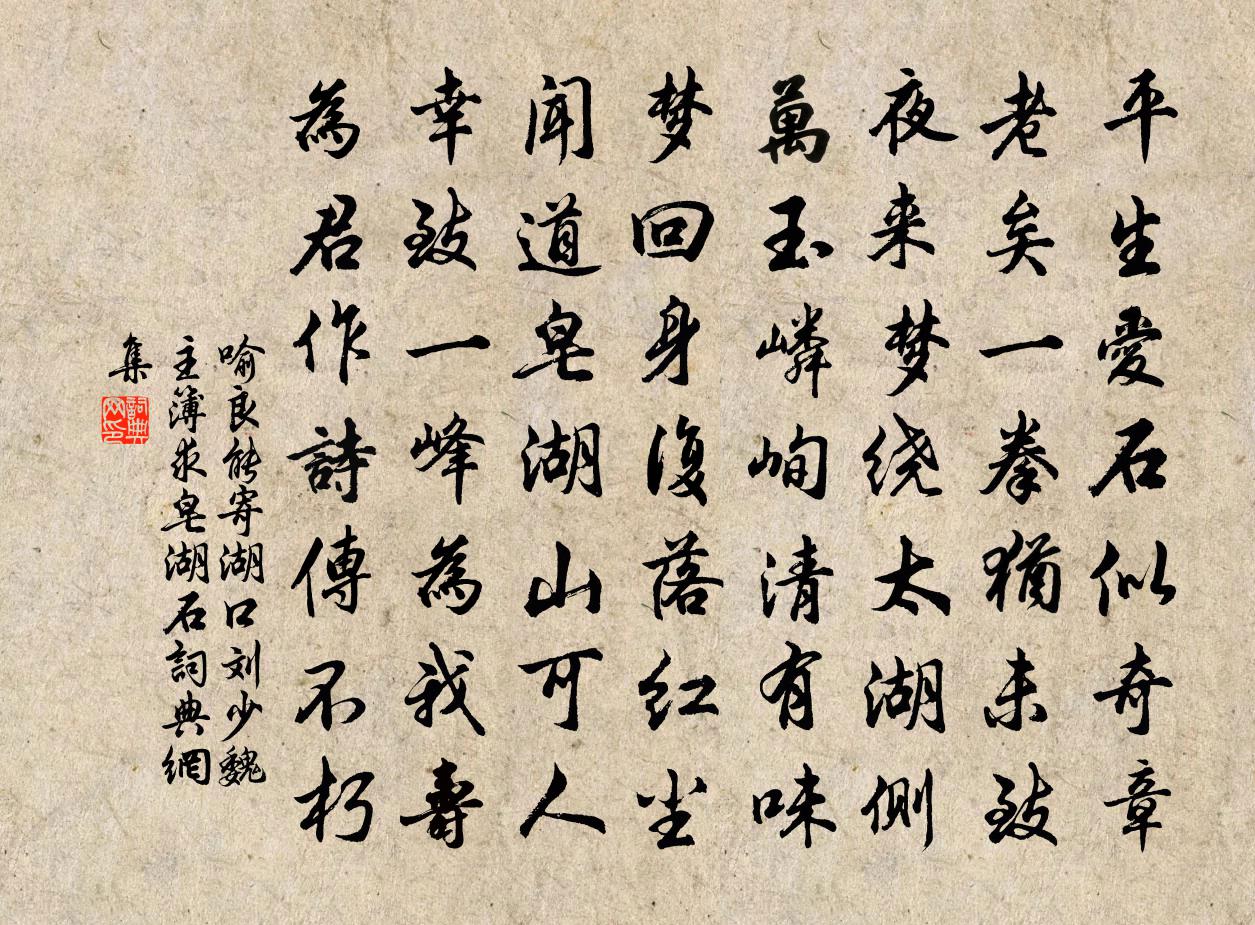 平生愛石似奇章
老矣一拳猶未致
夜来梦绕太湖側
萬玉嶙峋清有味
梦回身復落红尘
闻道皂湖山可人
幸致一峰為我壽
為君作詩傳不朽
喻良能寄湖口刘少魏
主簿求皂湖石詞典網
集
詞典网印